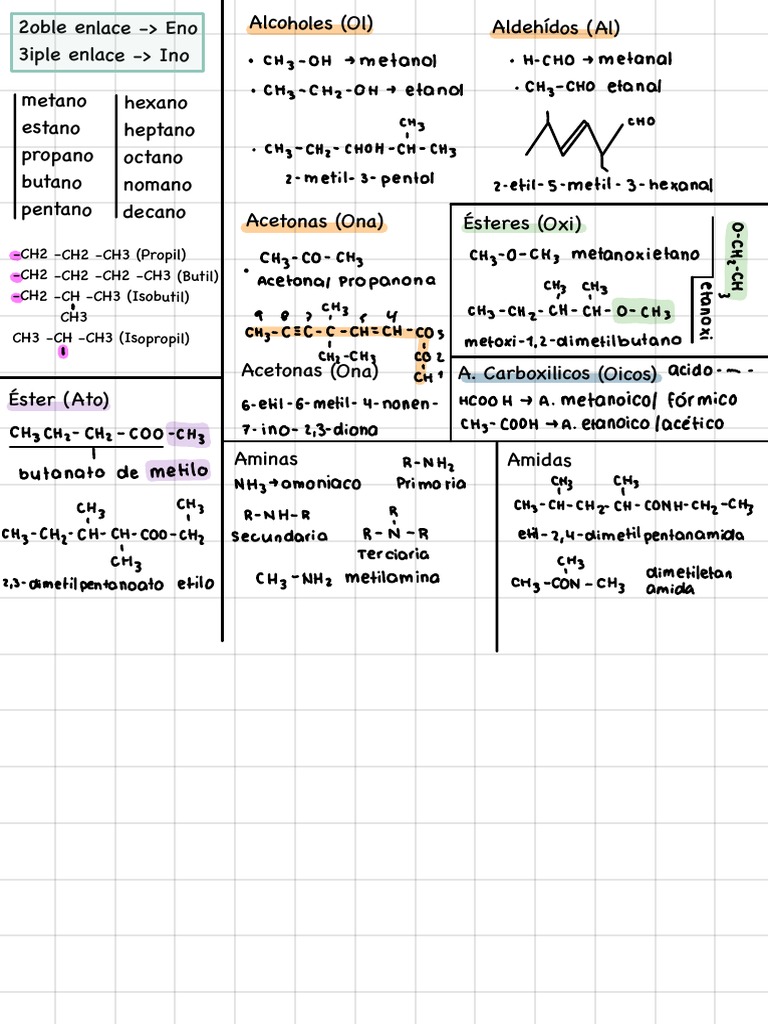 2oble enlace -> Eno
3iple enlace -> Ino
metano
estano
propano
butano
pentano
hexano
heptano
octano
nomano
decano
-CH2 -CH2 -CH3 (Propil)
-CH2 -CH2 -CH2 -CH3 (Butil)
-CH2 -CH -CH3 (Isobutil)
CH3
CH3 -CH -CH3 (Isopropil)
Éster (Ato)
CH3CH2-CH2-COO-CH3
butanato de metilo
CH3 CH3
CH3-CH2-CH-CH-COO-CH2
CH3
2,3-dimetilpentanoato etilo
Alcoholes (Ol)
• CH3-OH → metanol
• CH3-CH2-OH → etanol
CH3
• CH3-CH2-CHOH-CH-CH3
2-metil-3-pentol
Aldehídos (Al)
• H-CHO → metanal
• CH3-CHO etanal
CHO
2-etil-5-metil-3-hexanal
Acetonas (Ona)
CH3-CO-CH3
• Acetona/ Propanona
9 8 7 CH3 5 4
CH3-C≡C-C-CH=CH-CO 3
CH2-CH3 CO 2
CH 1
Acetonas (Ona)
6-etil-6-metil-4-nonen-
7-ino-2,3-diona
Ésteres (Oxi)
CH3-O-CH3 metanoxietano
CH3 CH3
CH3-CH2-CH-CH-O-CH3
metoxi-1,2-dimetilbutano
etanoxi
O-CH2-CH3
A. Carboxilicos (Oicos) acido----
HCOOH → A. metanoico/ fórmico
CH3-COOH → A. etanoico/acético
Aminas
NH3→amoniaco
R-NH2
Primaria
R-NH-R
Secundaria
R
R-N-R
Terciaria
CH3-NH2 metilamina
Amidas
CH3 CH3
CH3-CH-CH2-CH-CONH-CH2-CH3
etil-2,4-dimetilpentanamida
CH3
CH3-CON-CH3
dimetiletan
amida